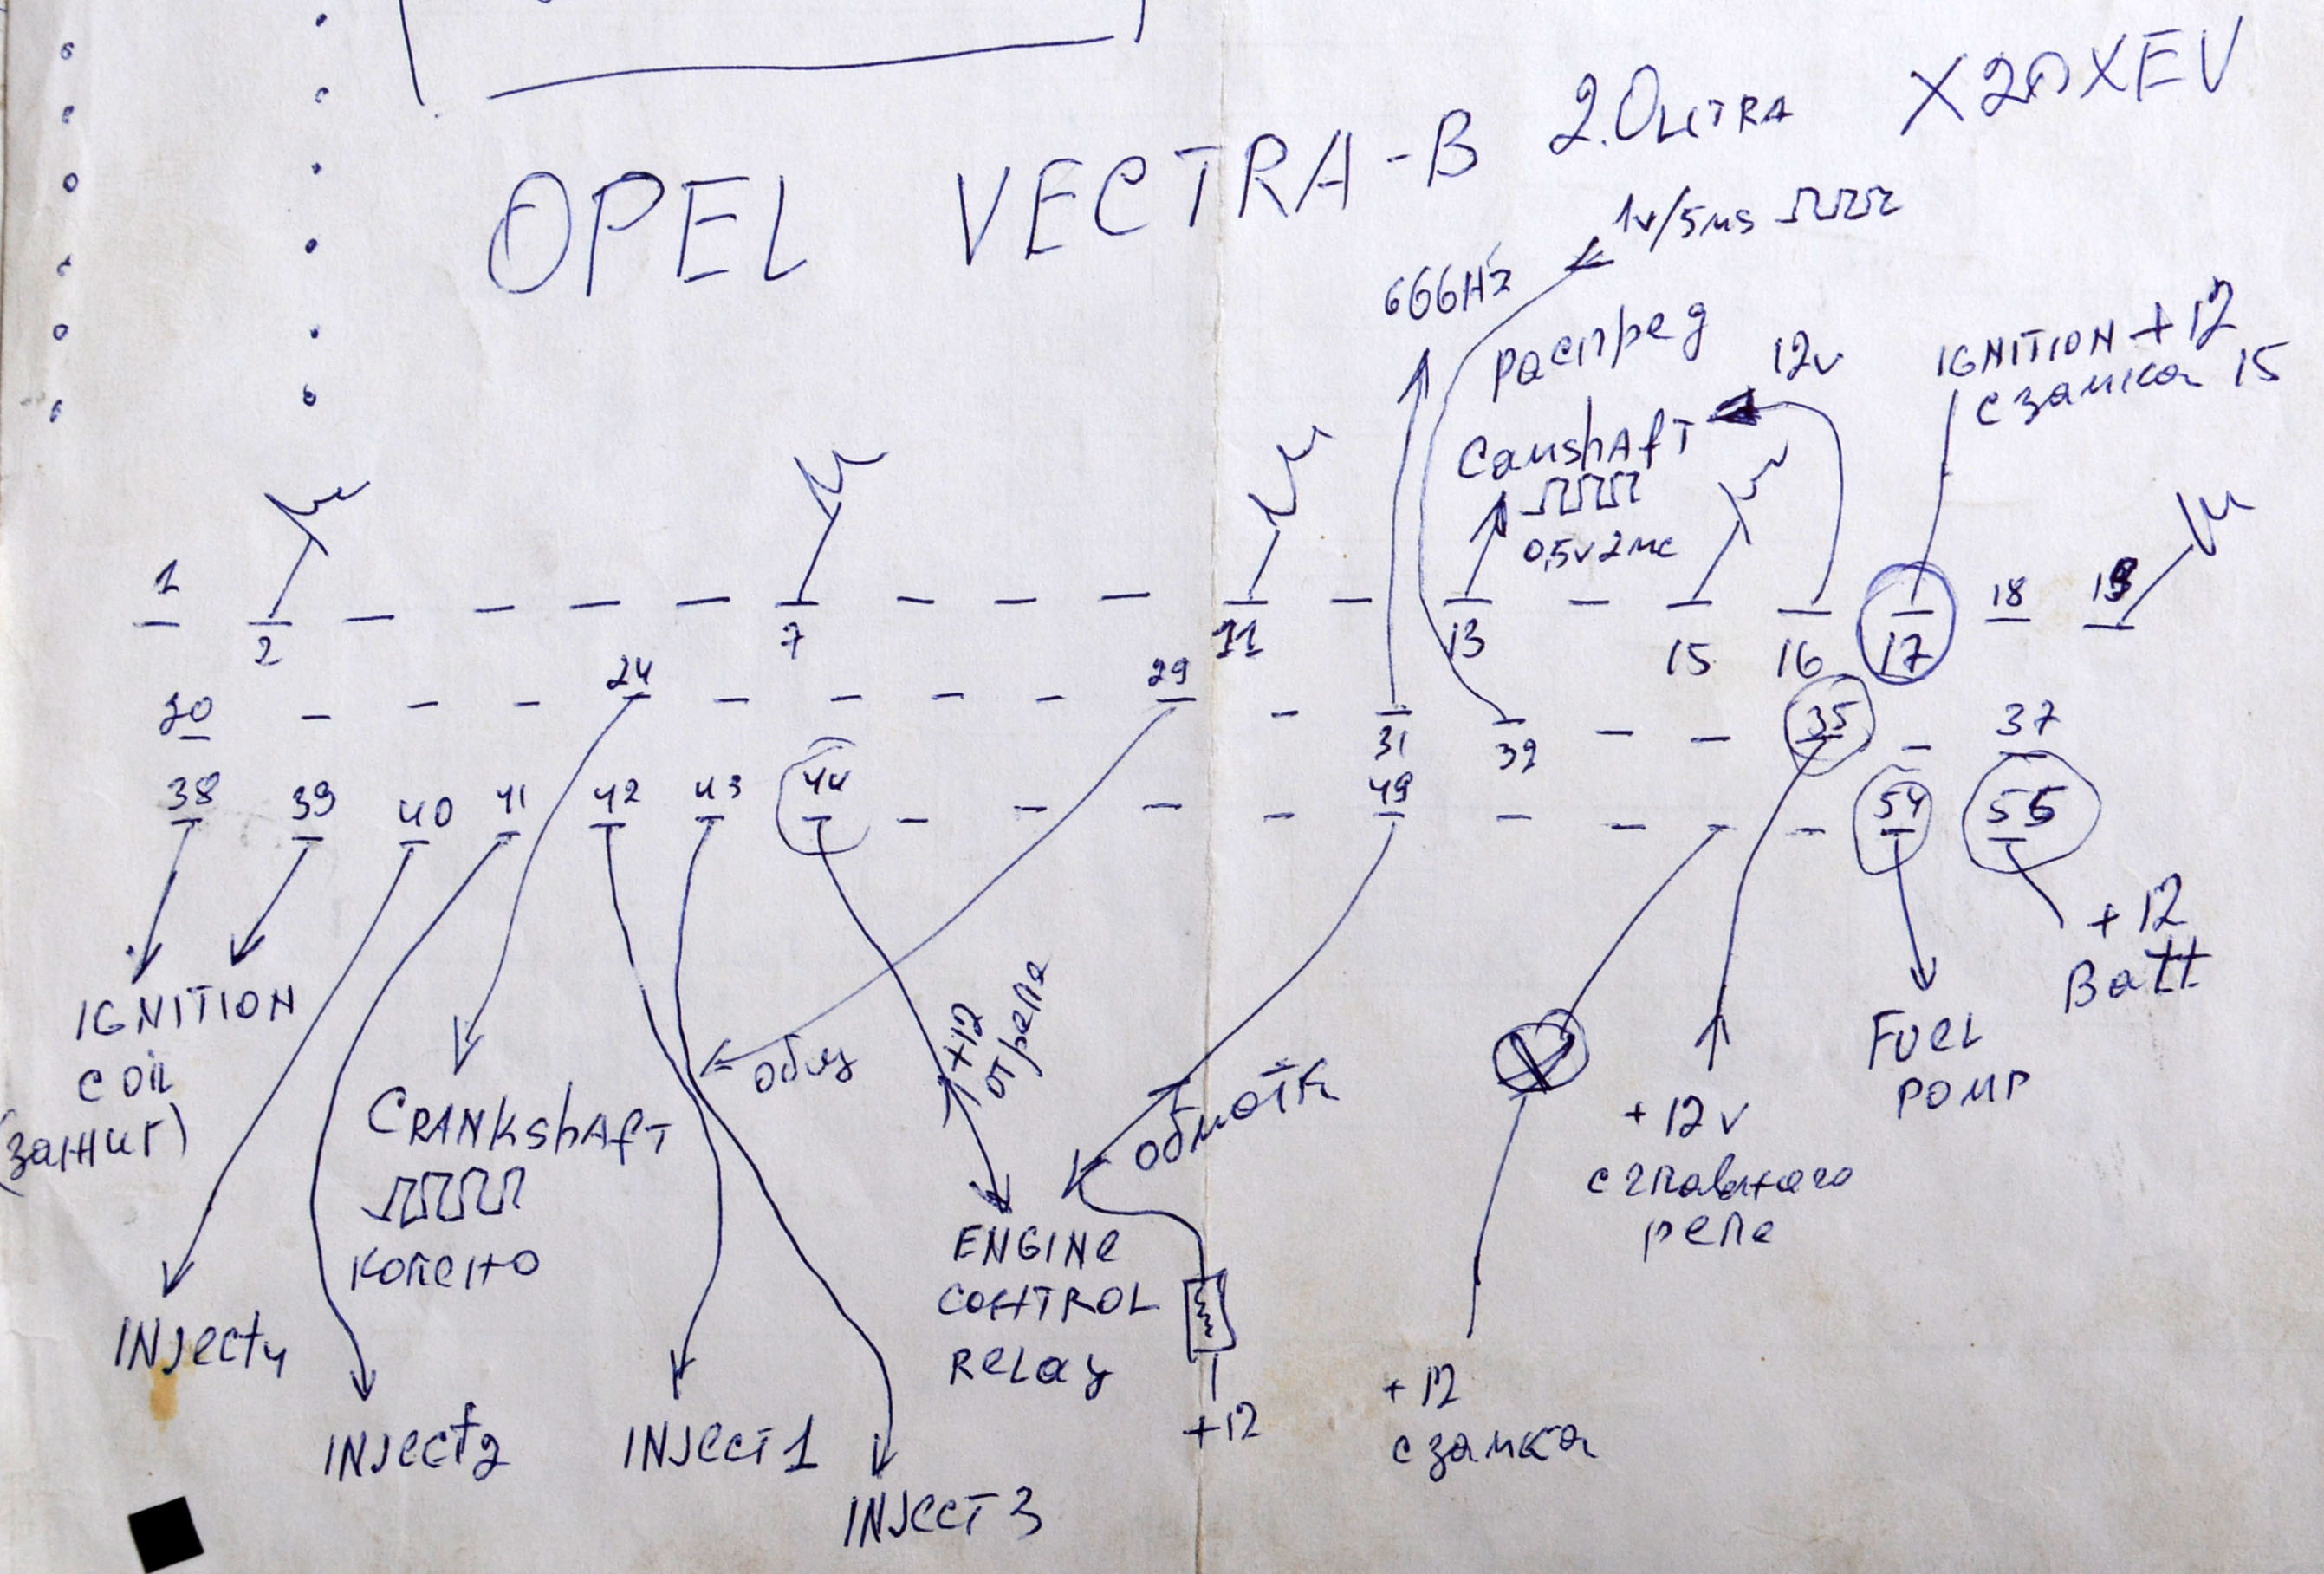 OPEL VECTRA-B 2.0 LITRA X20XEV
1v/5ms
666Hz
распред
12v
IGNITION +12
с замка 15
Camshaft
0,5v 2мс
1
2
7
11
13
15
16
17
18
19
20
24
29
31
32
35
37
38
39
40
41
42
43
44
49
54
55
IGNITION
COIL
(зажиг)
CRANKshAfT
колено
общ
+12
от реле
ENGINe
CONTROL
ReLay
обмотк
+12
+12v
с главного
реле
FUeL
POMP
+12
Batt
INJect4
INJect2
INJecT 1
INJecT 3
+12
с замка